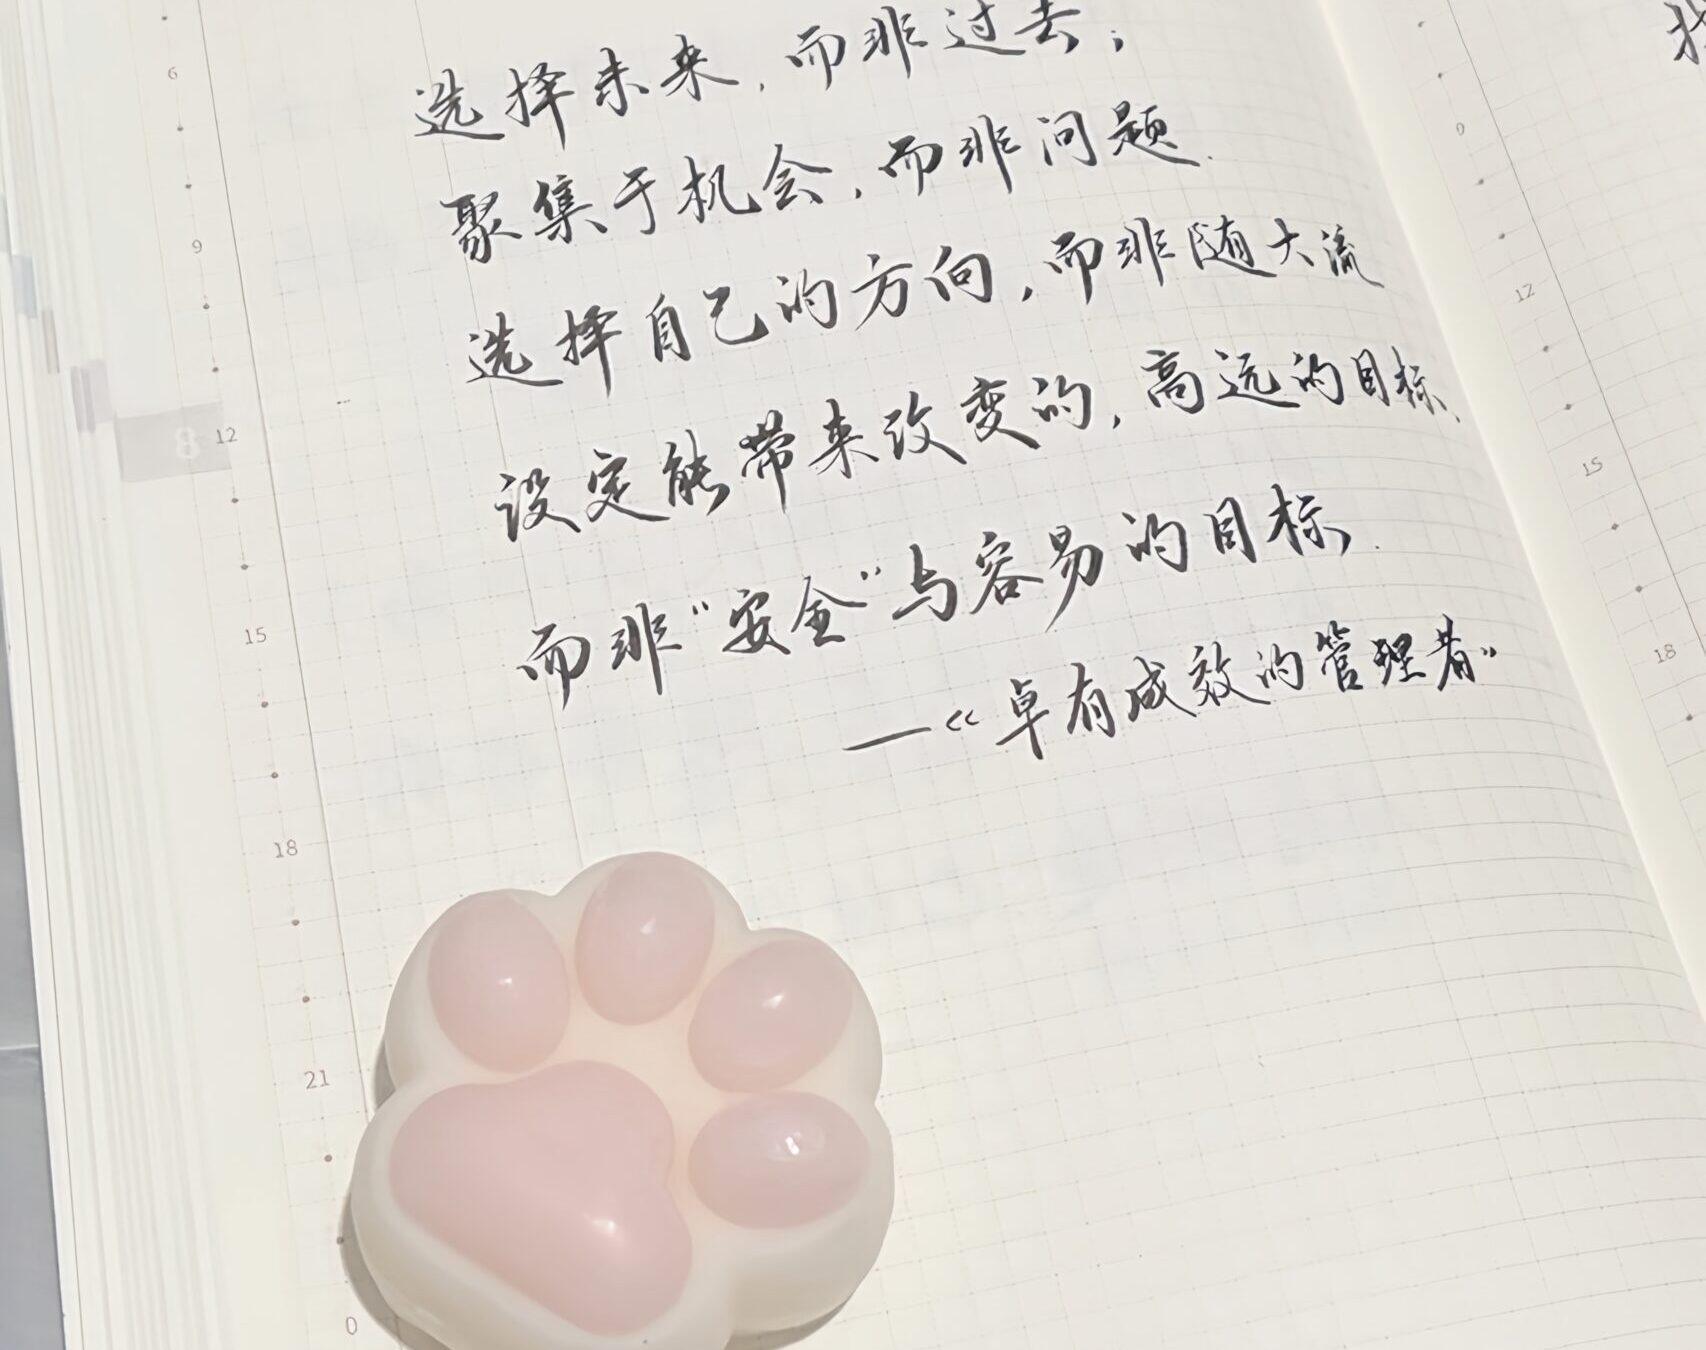 选择未来，而非过去；
聚集于机会，而非问题.
选择自己的方向，而非随大流
设定能带来改变的，高远的目标、
而非“安全”与容易的目标.
—《卓有成效的管理者》
6
9
8
12
15
18
21
0
9
12
15
18